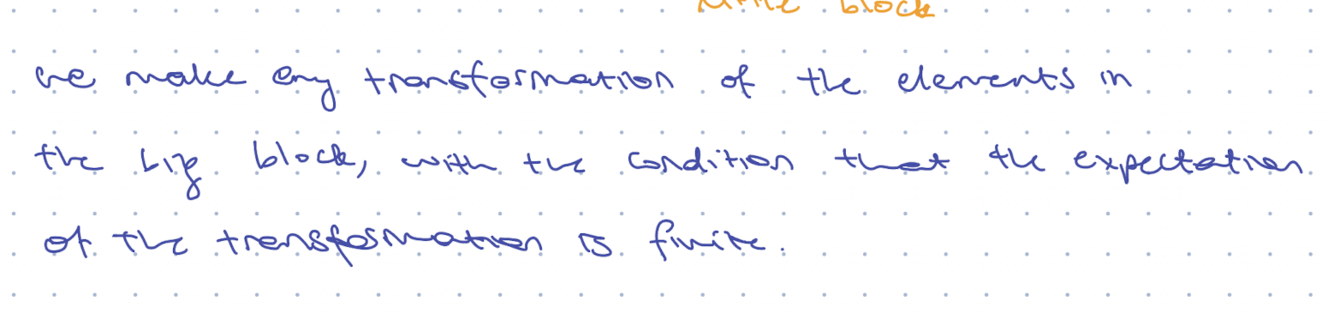 block.
we make any transformation of the elements in
the big block, with the condition that the expectation
of the transformation is finite.